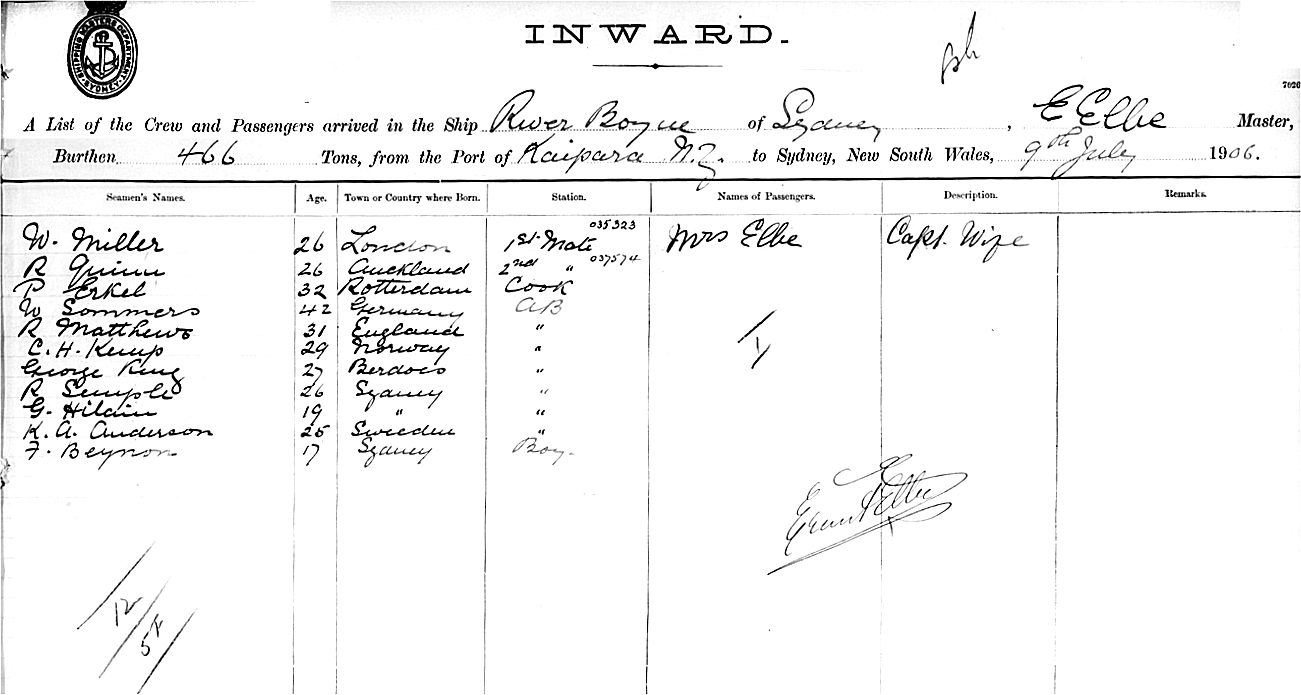 INWARD.
SHIPPING MASTERS DEPARTMENT SYDNEY
7020
A List of the Crew and Passengers arrived in the Ship River Boyne of Sydney, E Elbe Master,
Burthen 466 Tons, from the Port of Kaipara N.Z. to Sydney, New South Wales, 9th July 1906.
Seamen's Names. Age. Town or Country where Born. Station. Names of Passengers. Description. Remarks.
W. Miller 26 London 1st Mate 035323 Mrs Elbe Capt. Wife
R Quinn 26 Auckland 2nd " 037574
P Erkel 32 Rotterdam Cook
W Sommers 42 Germany AB
R Matthews 31 England "
C. H. Kemp 29 Norway "
George King 27 Berdois "
R Semple 26 Sydney "
G. Hilain 19 " "
K. A. Anderson 25 Sweeden "
F. Beynon 17 Sydney Boy.
12